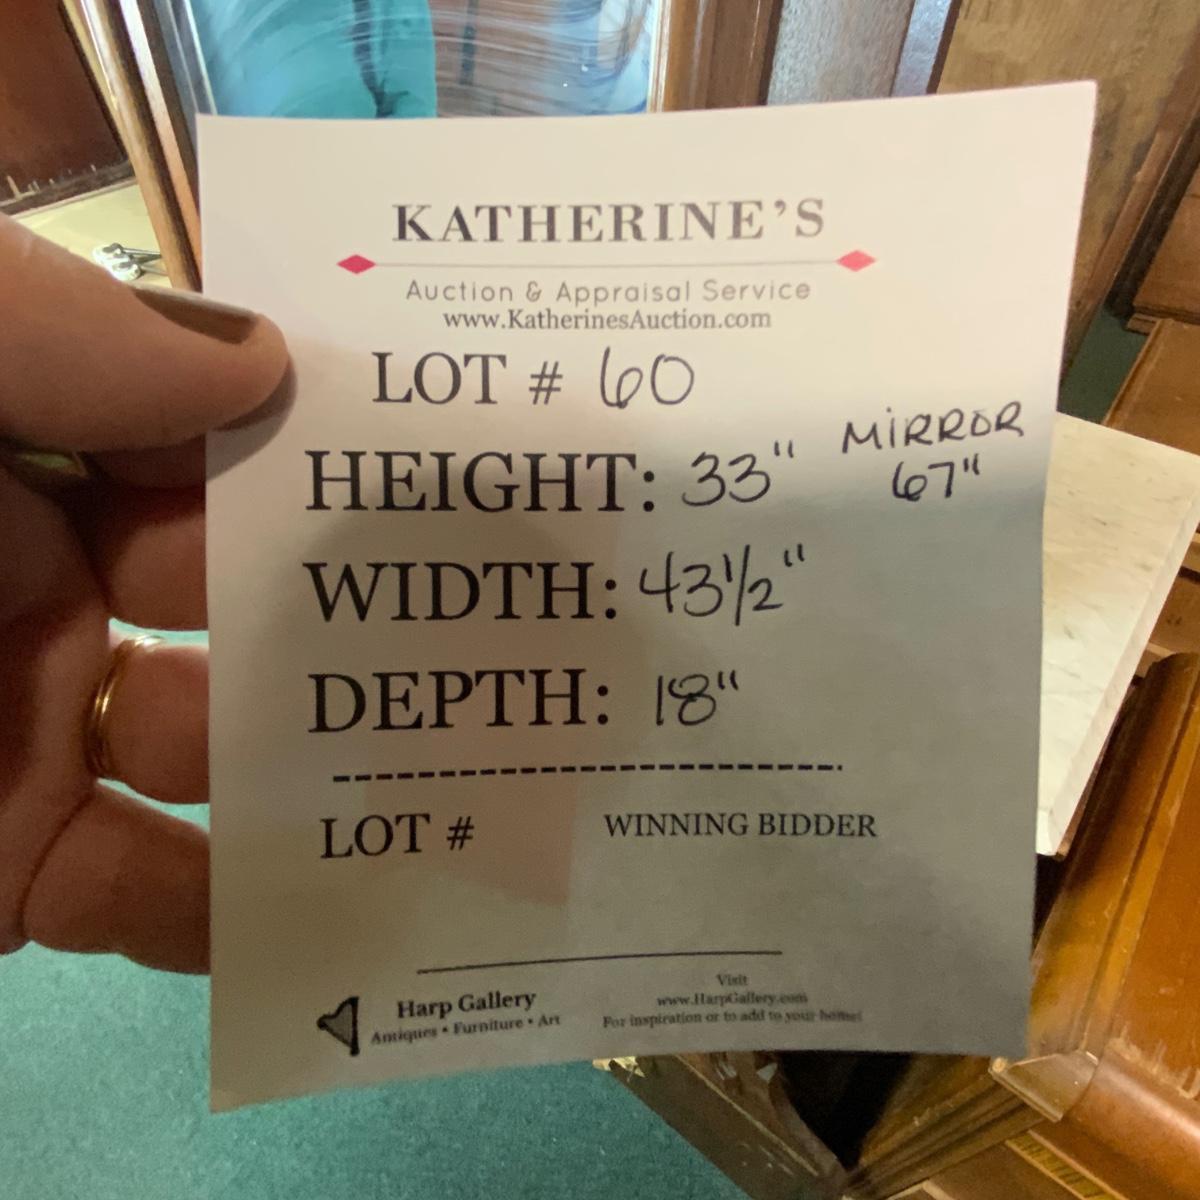 KATHERINE'S
Auction & Appraisal Service
www.KatherinesAuction.com
LOT # 60
HEIGHT: 33" MIRROR 67"
WIDTH: 43½"
DEPTH: 18"
LOT # WINNING BIDDER
Harp Gallery
Antiques • Furniture • Art
Visit
www.HarpGallery.com
For inspiration or to add to your home!